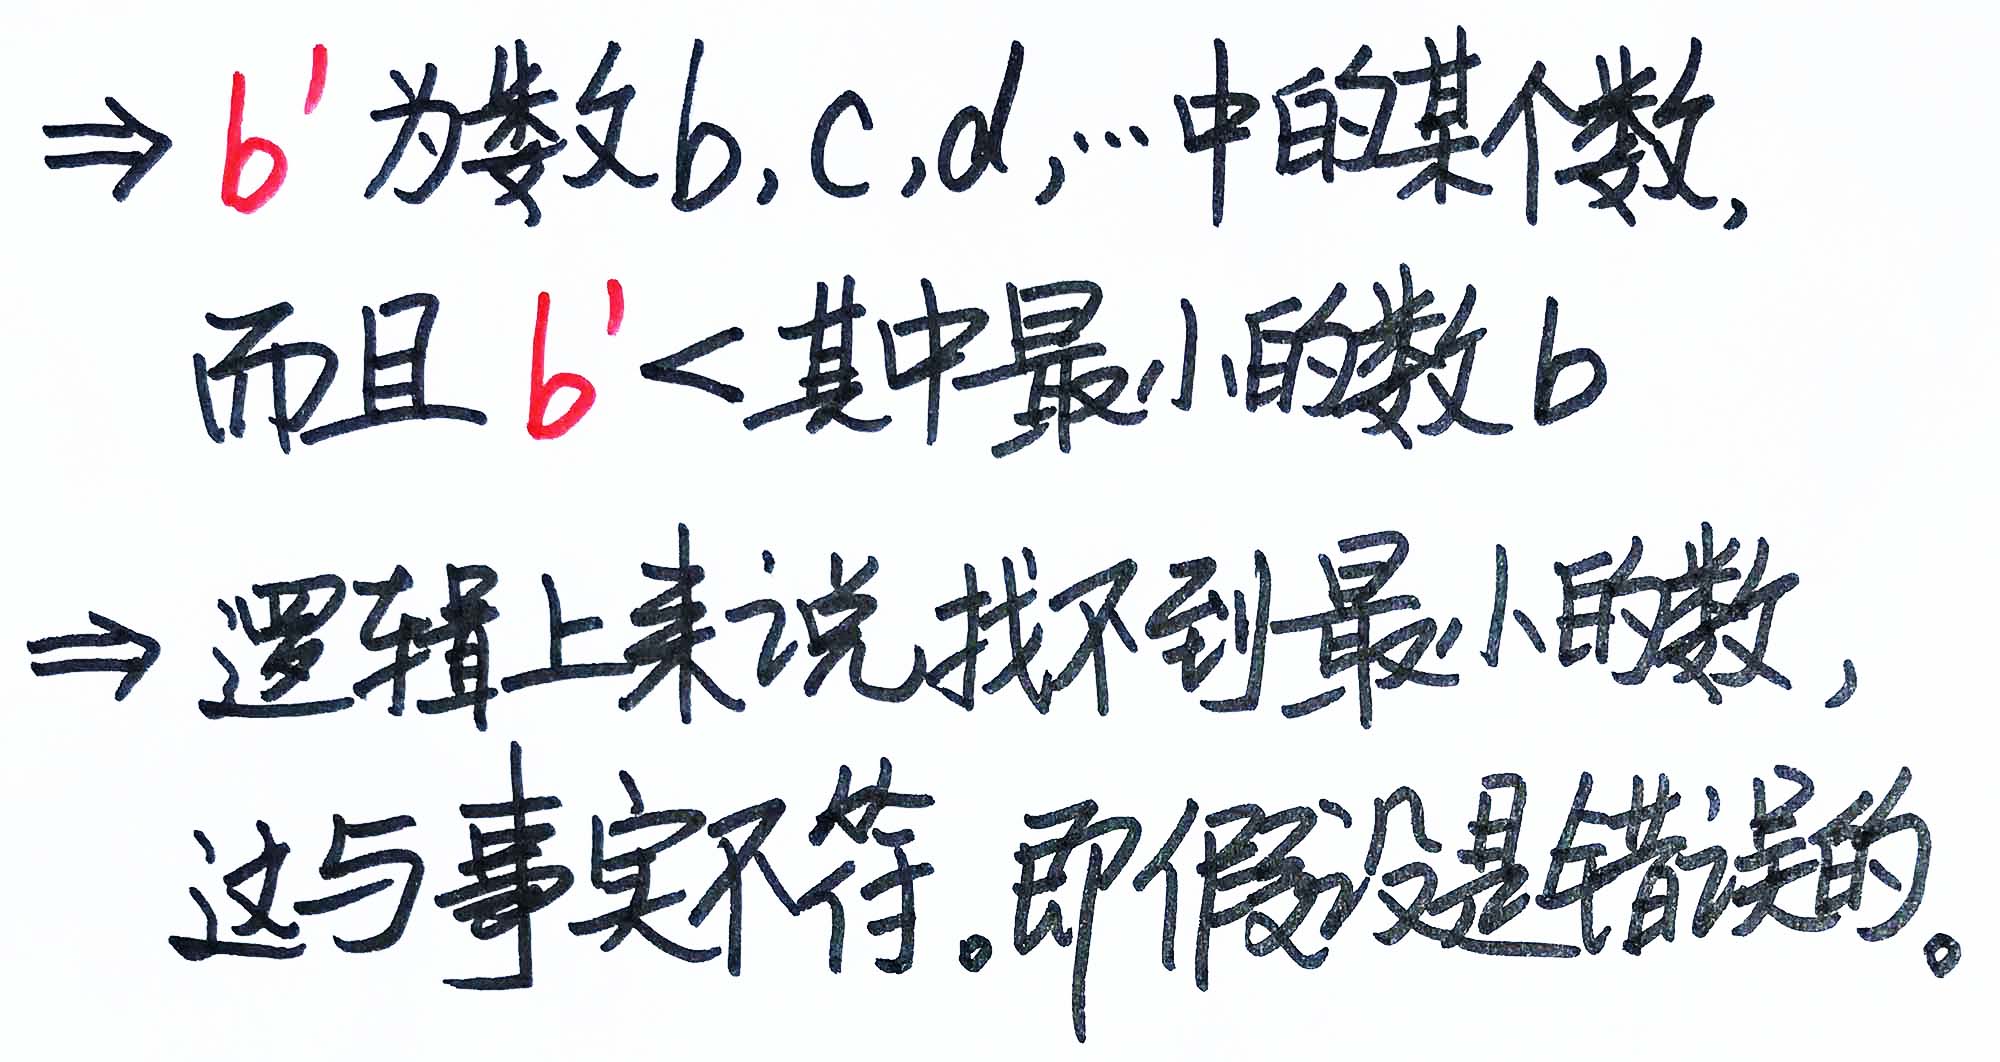 ⇒ b' 为数 b, c, d, … 中的某个数,
而且 b' < 其中最小的数 b
⇒ 逻辑上来说找不到最小的数,
这与事实不符。即假设是错误的。